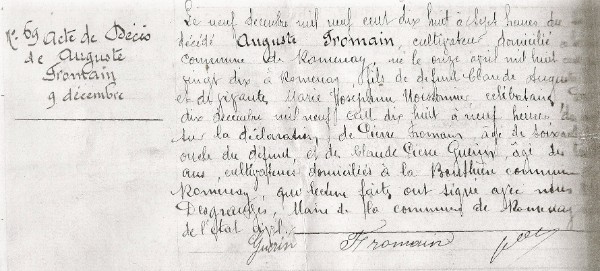 N° 69 Acte de Décès
de Auguste
Fromain
9 décembre
Le neuf décembre mil neuf cent dix huit à sept heures du
décédé Auguste Fromain, cultivateur domicilié à
commune de Romenay, né le onze avril mil huit
vingt dix à Romenay, fils de défunt Claude Auguste
et de vivante Marie Josephine célibataire
dix décembre mil neuf cent dix huit à neuf heures
sur la déclaration de Pierre Fromain, âgé de soix
oncle du défunt, et de Claude Pierre Guérin, âgé de
ans, cultivateurs domiciliés à la commune
Romenay, qui lecture faite, ont signé avec nous
Maire de la commune de Romenay
de l'état civil
Guérin Fromain